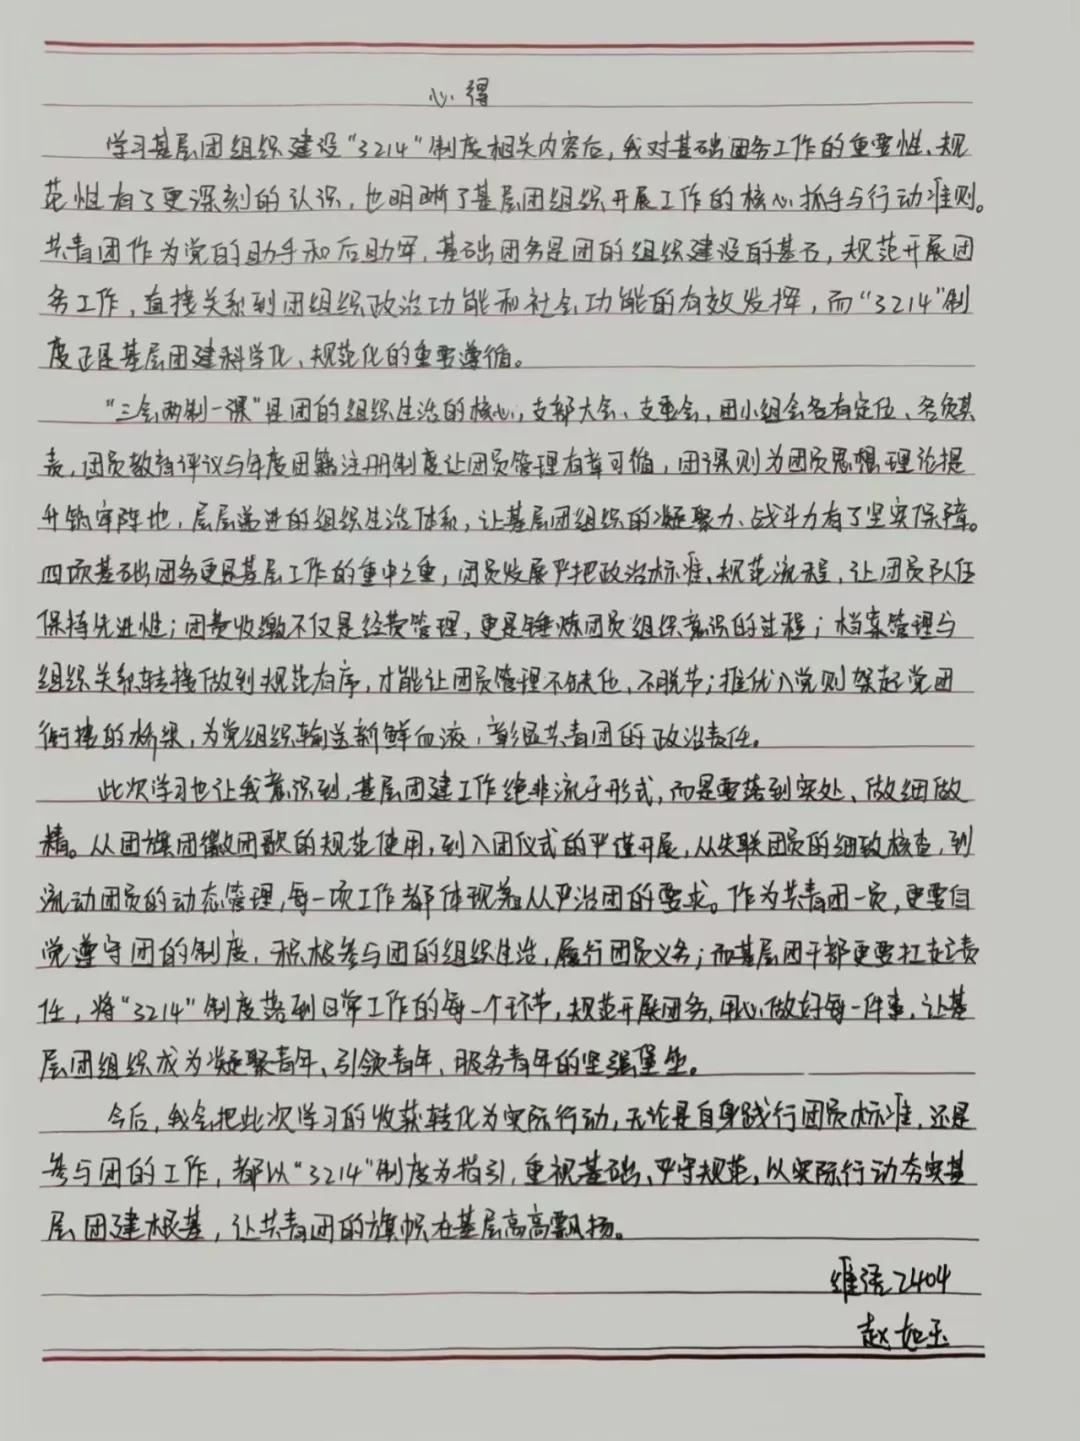 心得
学习基层团组织建设“3214”制度相关内容后，我对基础团务工作的重要性、规
范性有了更深刻的认识，也明晰了基层团组织开展工作的核心抓手与行动准则。
共青团作为党的助手和后助军，基础团务是团的组织建设的基石，规范开展团
务工作，直接关系到团组织政治功能和社会功能的有效发挥，而“3214”制
度正是基层团建科学化、规范化的重要遵循。
“三会两制一课”是团的组织生活的核心，支部大会、支委会、团小组会各有定位、各负其
责，团员教育评议与年度团籍注册制度让团员管理有章可循，团课则为团员思想理论提
升筑牢阵地，层层递进的组织生活体系，让基层团组织的凝聚力、战斗力有了坚实保障。
四项基础团务更是基层工作的重中之重，团员发展严把政治标准、规范流程，让团员队伍
保持先进性；团费收缴不仅是经费管理，更是锤炼团员组织意识的过程；档案管理与
组织关系转接做到规范有序，才能让团员管理不缺位、不脱节；推优入党则架起党团
衔接的桥梁，为党组织输送新鲜血液，彰显共青团的政治责任。
此次学习也让我意识到，基层团建工作绝非流于形式，而是要落到实处、做细做
精。从团旗团徽团歌的规范使用，到入团仪式的严谨开展，从失联团员的细致核查，到
流动团员的动态管理，每一项工作都体现着从严治团的要求。作为共青团一员，更要自
觉遵守团的制度，积极参与团的组织生活，履行团员义务；而基层团干部更要扛起责
任，将“3214”制度落到日常工作的每一个环节，规范开展团务，用心做好每一件事，让基
层团组织成为凝聚青年、引领青年、服务青年的坚强堡垒。
今后，我会把此次学习的收获转化为实际行动，无论是自身践行团员标准，还是
参与团的工作，都以“3214”制度为指引，重视基础、严守规范，以实际行动夯实基
层团建根基，让共青团的旗帜在基层高高飘扬。
维语2404
赵如玉